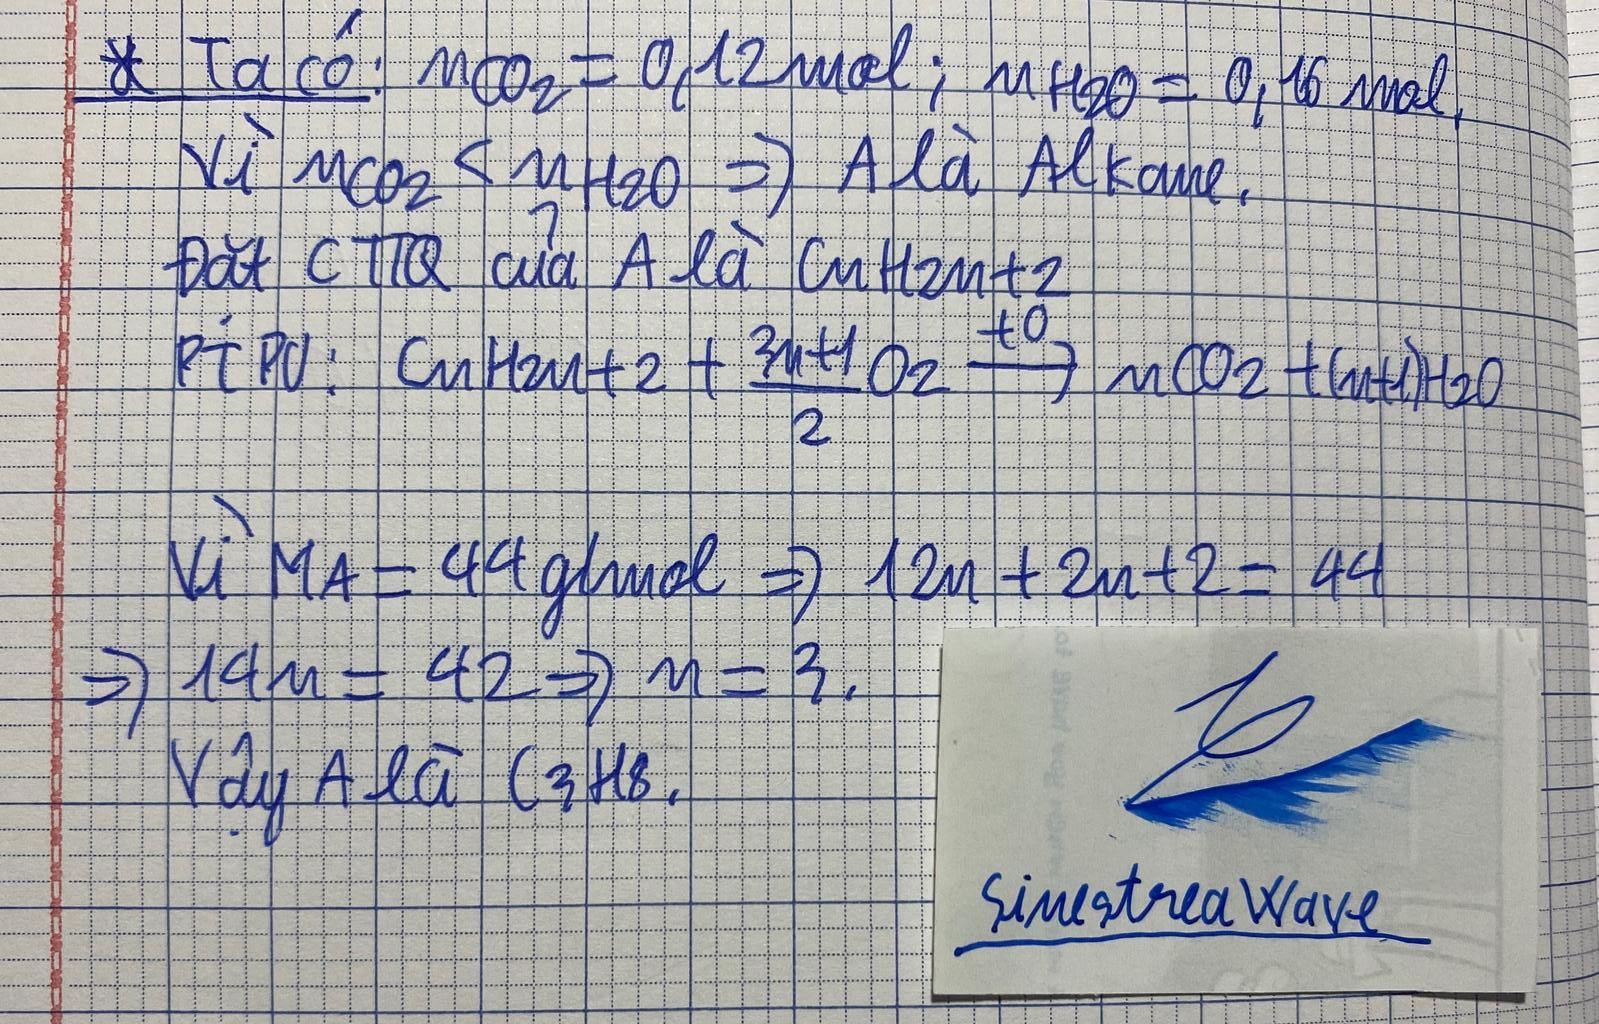 * Ta có: nCO2 = 0,12 mol; nH2O = 0,16 mol.
Vì nCO2 < nH2O => A là Alkane.
Đặt CTTQ của A là CnH2n+2
PTPƯ: CnH2n+2 + 3n+1/2 O2 t0→ nCO2 + (n+1)H2O
Vì MA = 44 g/mol => 12n + 2n + 2 = 44
=> 14n = 42 => n = 3.
Vậy A là C3H8.
Sinestrea Wave